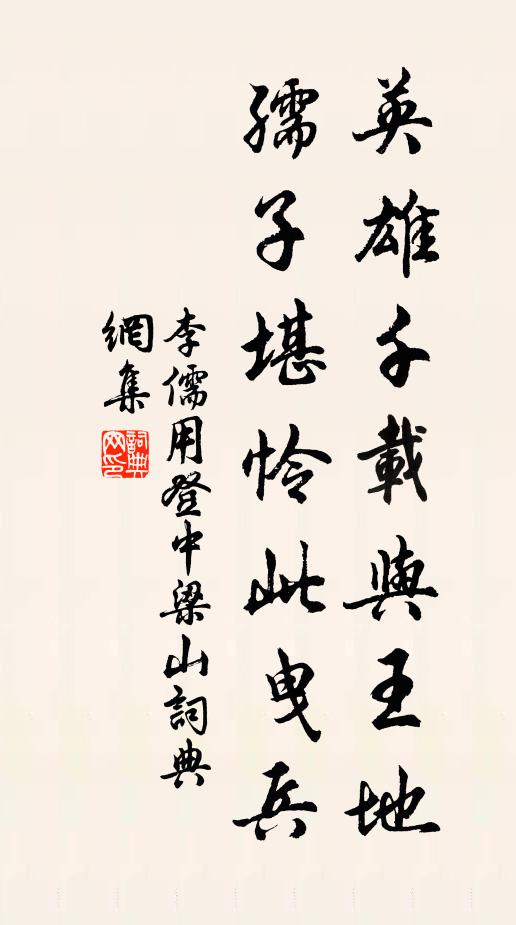 英雄千載與王地
孺子堪怜此曳兵
李儒用登中梁山詞典
網集
詞典
网印